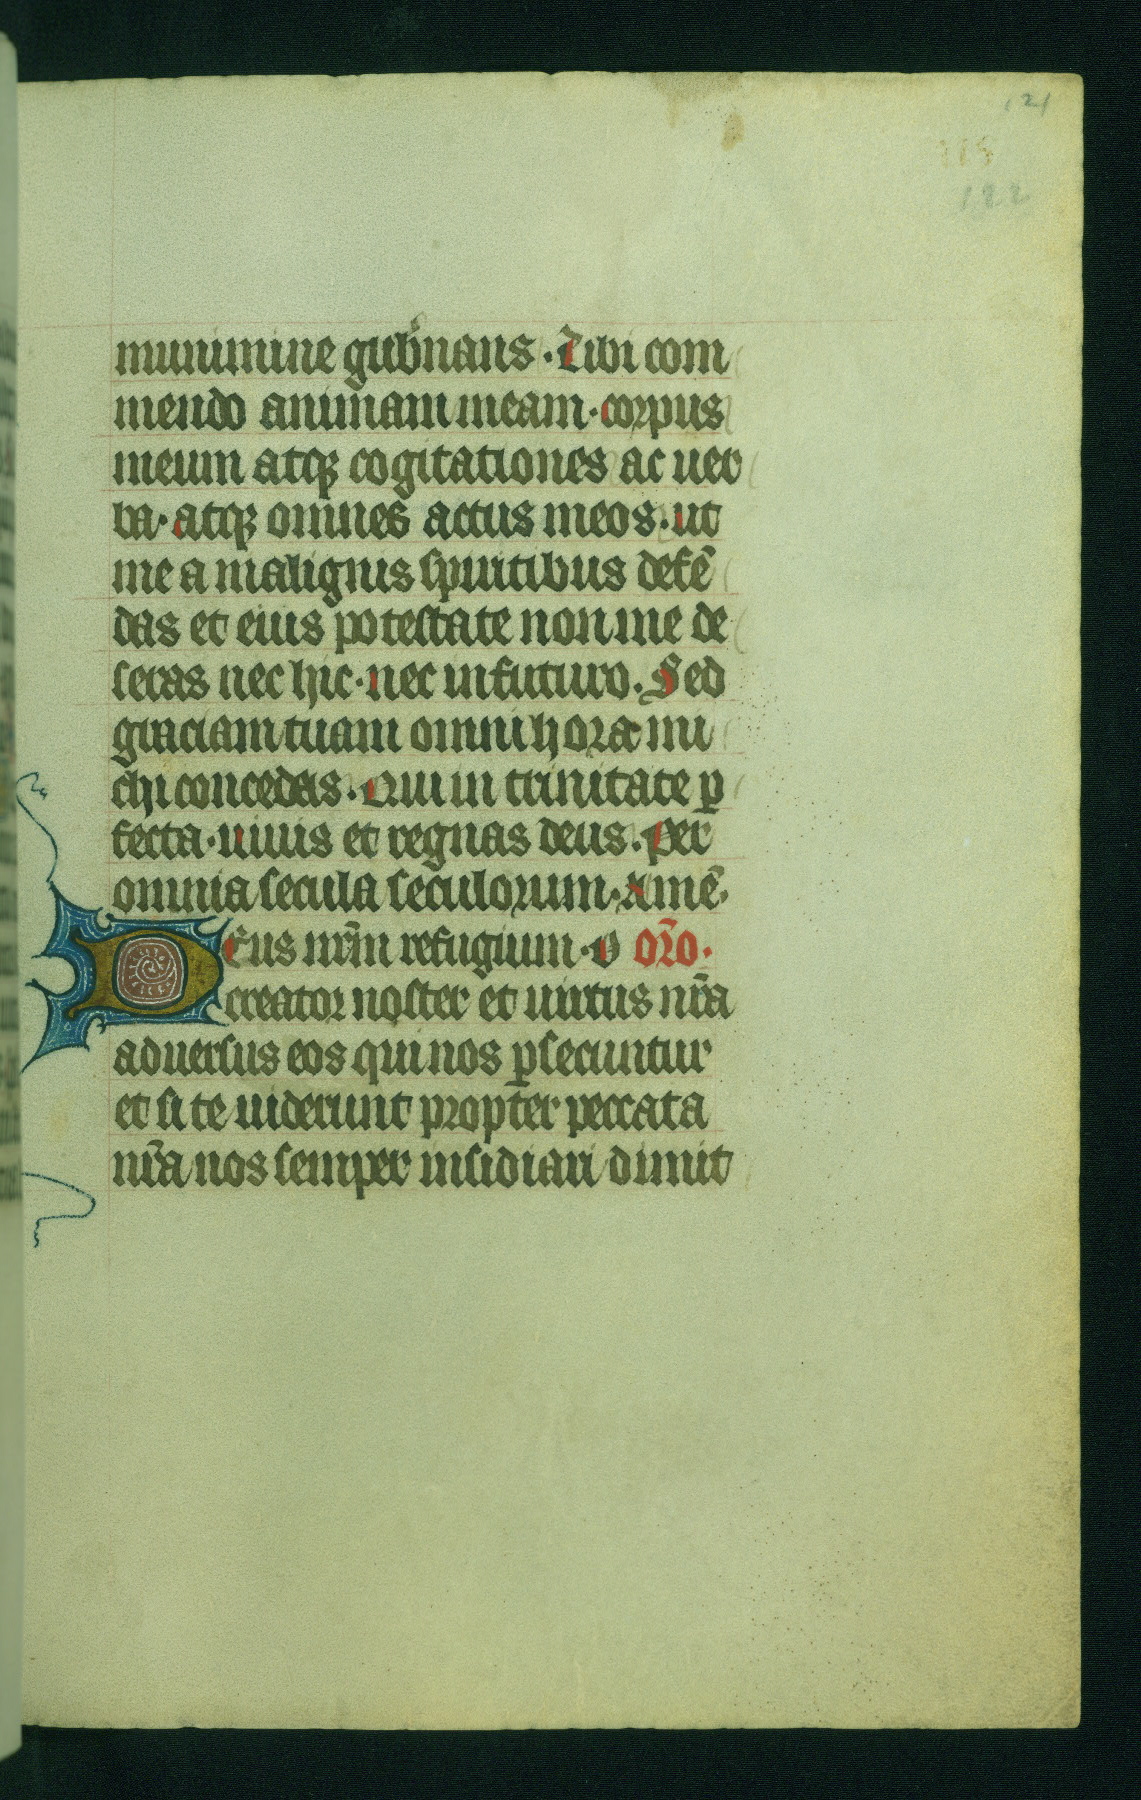 121
118
122
munimine gub̾nans · Tibi com
mendo animam meam · corpus
meum atqꝫ cogitationes ac uer
ba · atqꝫ omnes actus meos · ut
me a malignis spiritibus defē
das et eius potestate non me de
seras nec hic · nec in futuro . Sed
graciam tuam omni hora mi
chi concedas . Qui in trinitate ꝑ
fecta · uiuis et regnas deus . Per
omnia secula seculorum · Amē ·
Deus nr̄m refugium · O or̄o ·
creator noster et uirtus nr̄a
aduersus eos qui nos ꝑsecuntur
et si te uiderunt propter peccata
nr̄a nos semper insidiari dimit